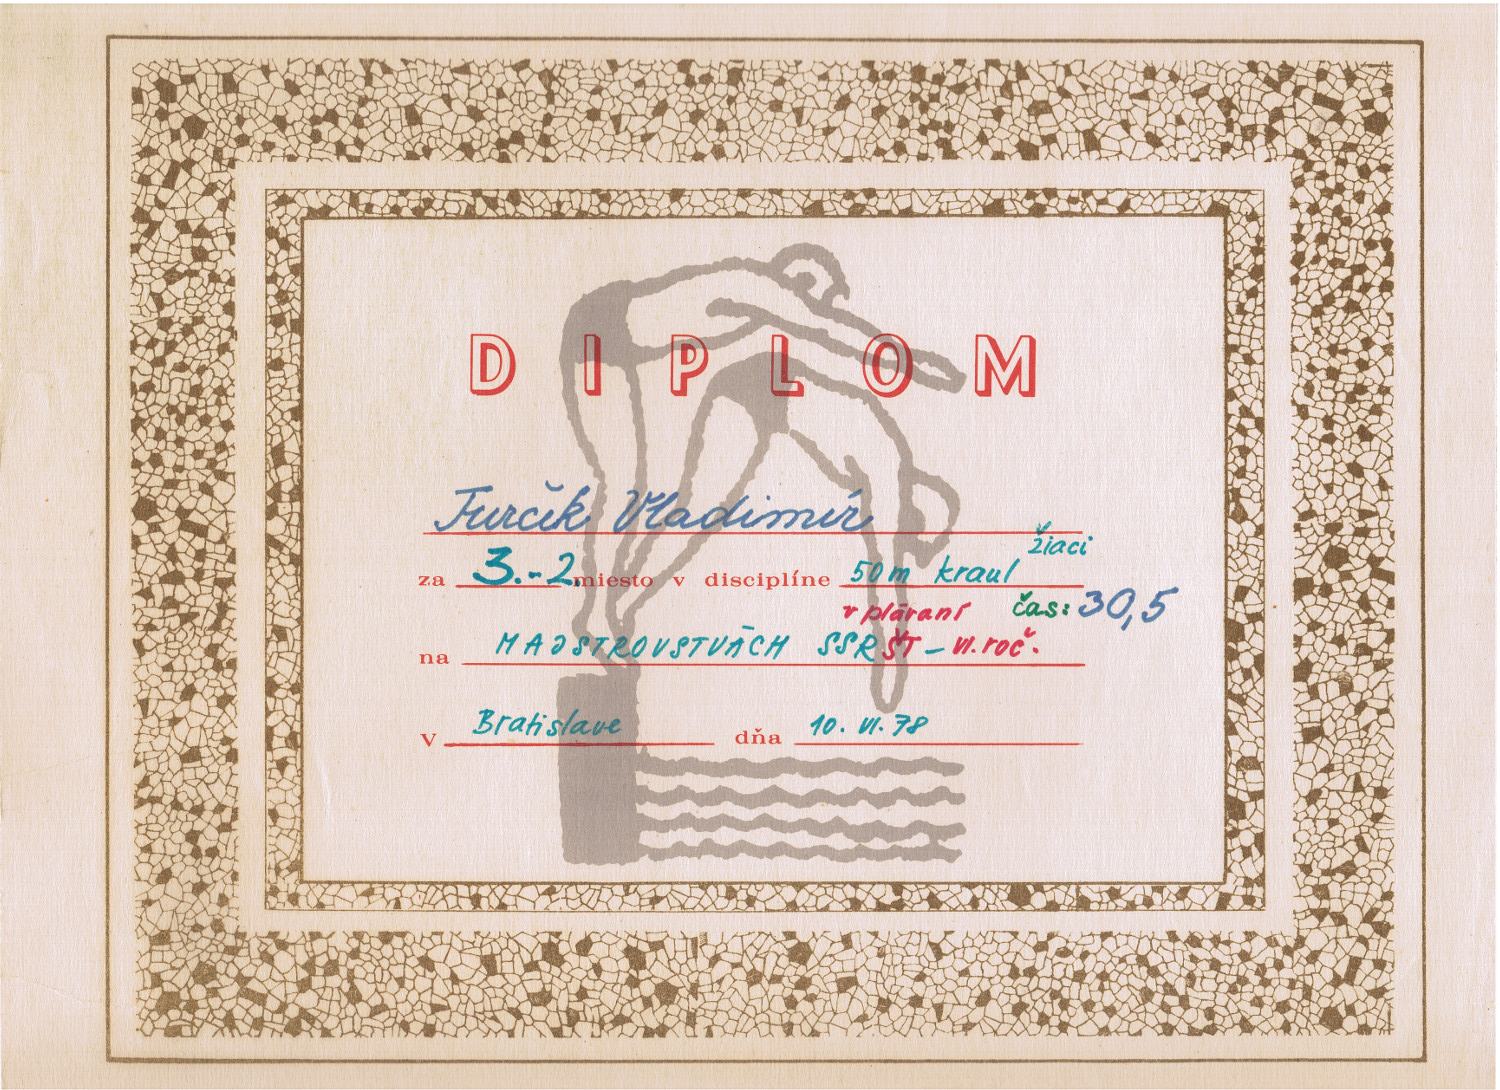 DIPLOM
Furčík Vladimír
žiaci
za 3.-2. miesto v disciplíne 50m kraul
v plávaní čas: 30,5
na MAJSTROVSTVÁCH SSR ŠT - VI. roč.
V Bratislave dňa 10. VI. 78